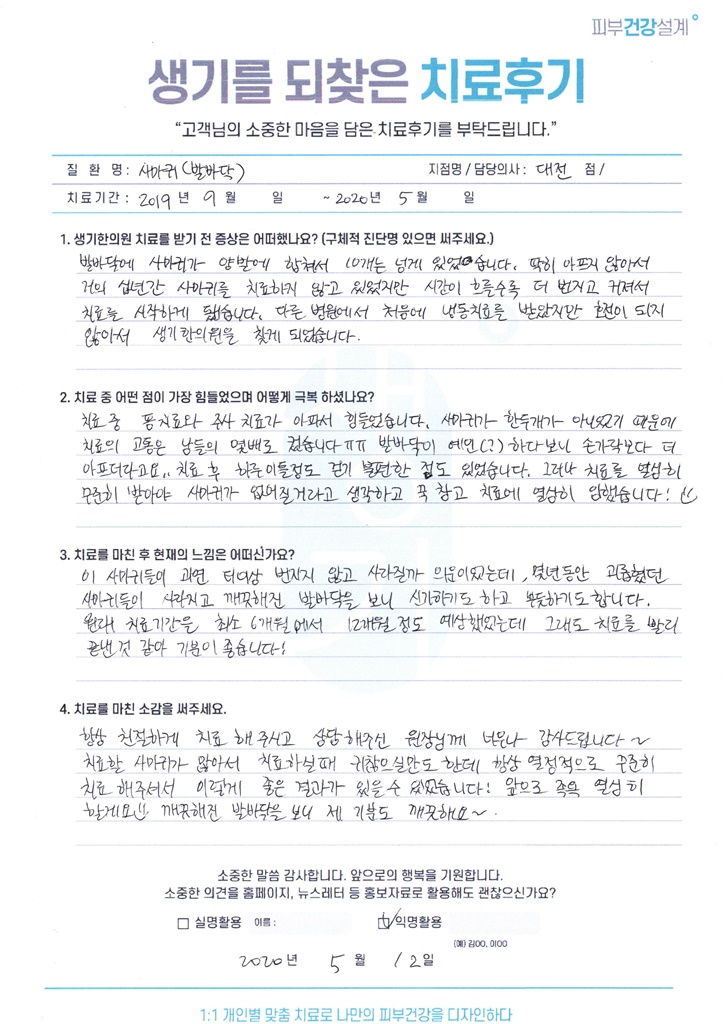 피부건강설계
생기를 되찾은 치료후기
“고객님의 소중한 마음을 담은 치료후기를 부탁드립니다.”
질 환 명 : 사마귀 (발바닥) 지점명 / 담당의사 : 대전 점 /
치료기간 : 2019 년 9 월 일 ~ 2020 년 5 월 일
1. 생기한의원 치료를 받기 전 증상은 어떠했나요? (구체적 진단명 있으면 써주세요.)
발바닥에 사마귀가 양발에 합쳐서 10개는 넘게 있었습니다. 딱히 아프지 않아서
거의 십년간 사마귀를 치료하지 않고 있었지만 시간이 흐를수록 더 번지고 커져서
치료를 시작하게 됐습니다. 다른 병원에서 처음에 냉동치료를 받았지만 호전이 되지
않아서 생기한의원을 찾게 되었습니다.
2. 치료 중 어떤 점이 가장 힘들었으며 어떻게 극복 하셨나요?
치료 중 뜸치료와 주사 치료가 아파서 힘들었습니다. 사마귀가 한두개가 아니었기 때문에
치료의 고통은 남들의 몇배로 컸습니다ㅠㅠ 발바닥이 예민(?)하다보니 손가락보다 더
아프더라고요.. 치료 후 하루이틀정도 걷기 불편한 점도 있었습니다. 그러나 치료를 열심히
꾸준히 받아야 사마귀가 없어질거라고 생각하고 꾹 참고 치료에 열심히 임했습니다!
3. 치료를 마친 후 현재의 느낌은 어떠신가요?
이 사마귀들이 과연 더이상 번지지 않고 사라질까 의문이었는데, 몇년동안 괴롭혔던
사마귀들이 사라지고 깨끗해진 발바닥을 보니 신기하기도 하고 뿌듯하기도합니다.
원래 치료기간을 최소 6개월에서 12개월정도 예상했었는데 그래도 치료를 빨리
끝낸것 같아 기분이 좋습니다!
4. 치료를 마친 소감을 써주세요.
항상 친절하게 치료 해주시고 상담해주신 원장님께 너무나 감사드립니다~
치료할 사마귀가 많아서 치료하실때 귀찮으실만도 한데 항상 열정적으로 꾸준히
치료 해주셔서 이렇게 좋은 결과가 있을 수 있었습니다! 앞으로 족욕 열심히
할게요 깨끗해진 발바닥을 보니 제 기분도 깨끗해요~
소중한 말씀 감사합니다. 앞으로의 행복을 기원합니다.
소중한 의견을 홈페이지, 뉴스레터 등 홍보자료로 활용해도 괜찮으신가요?
실명활용 이름 : 익명활용
(예) 김OO, 이OO
2020 년 5 월 12 일
1:1 개인별 맞춤 치료로 나만의 피부건강을 디자인하다